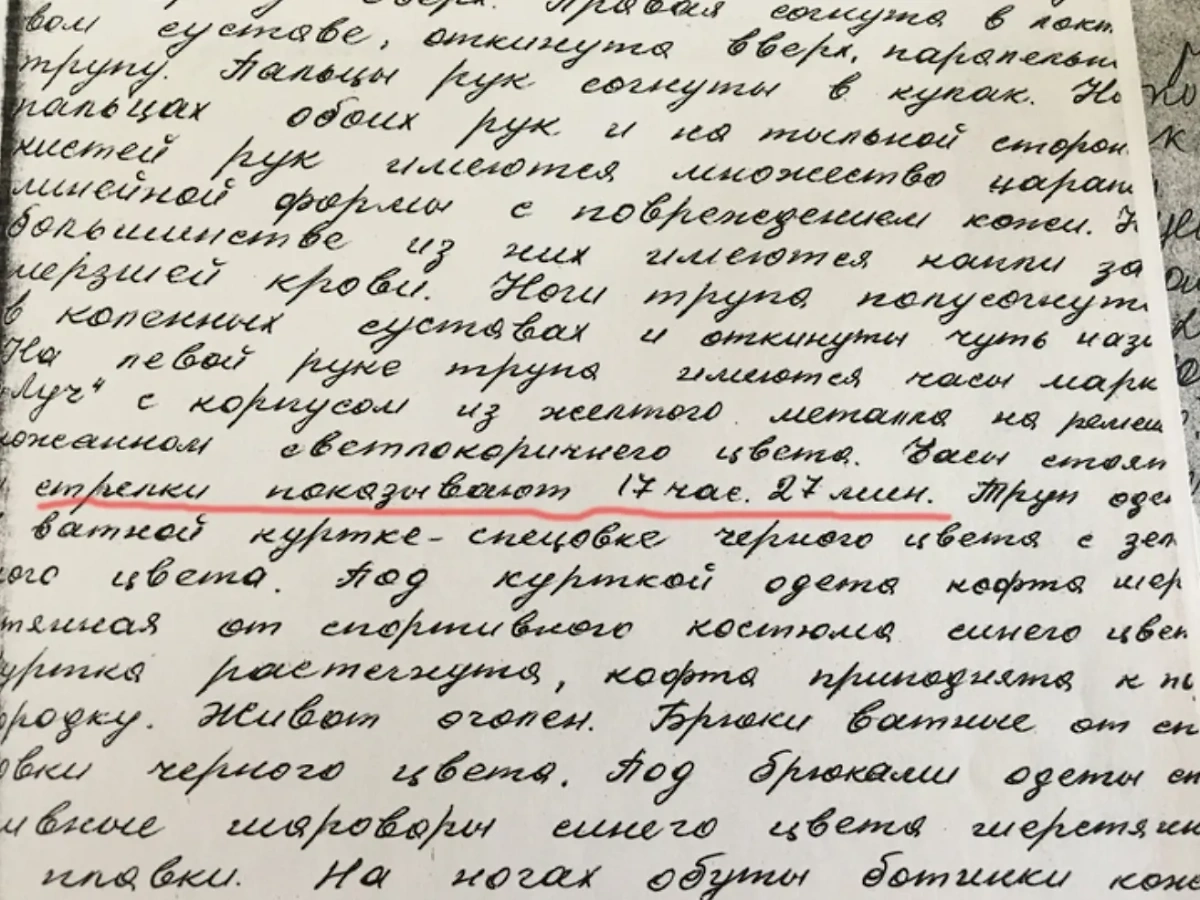 сверх. Правая согнута в локт
вом суставе, откинута вверх, паралельн
трупу. Пальцы рук согнуты в кулак. На
пальцах обоих рук и на тыльной сторон
кистей рук имеются множество царап
линейной формы с повреждением кожи. Н
большинстве из них имеются капли за
мерзшей крови. Ноги трупа полусогнуты
в коленных суставах и откинуты чуть наза
На левой руке трупа имеются часы марк
„Луч" с корпусом из желтого металла на ремеш
кожанном светлокоричнего цвета. Часы стоят
стрелки показывают 17 час. 27 мин. Труп оде
ватной куртке-спецовке черного цвета с зел
ого цвета. Под курткой одета кофта шер
тянная от спортивного костюма синего цвет
уртка растегнута, кофта приподнята к п
ородку. Живот оголен. Брюки ватные от сп
овки черного цвета. Под брюками одеты сп
ивные шаровары синего цвета шерстян
плавки. На ногах обуты ботинки кож